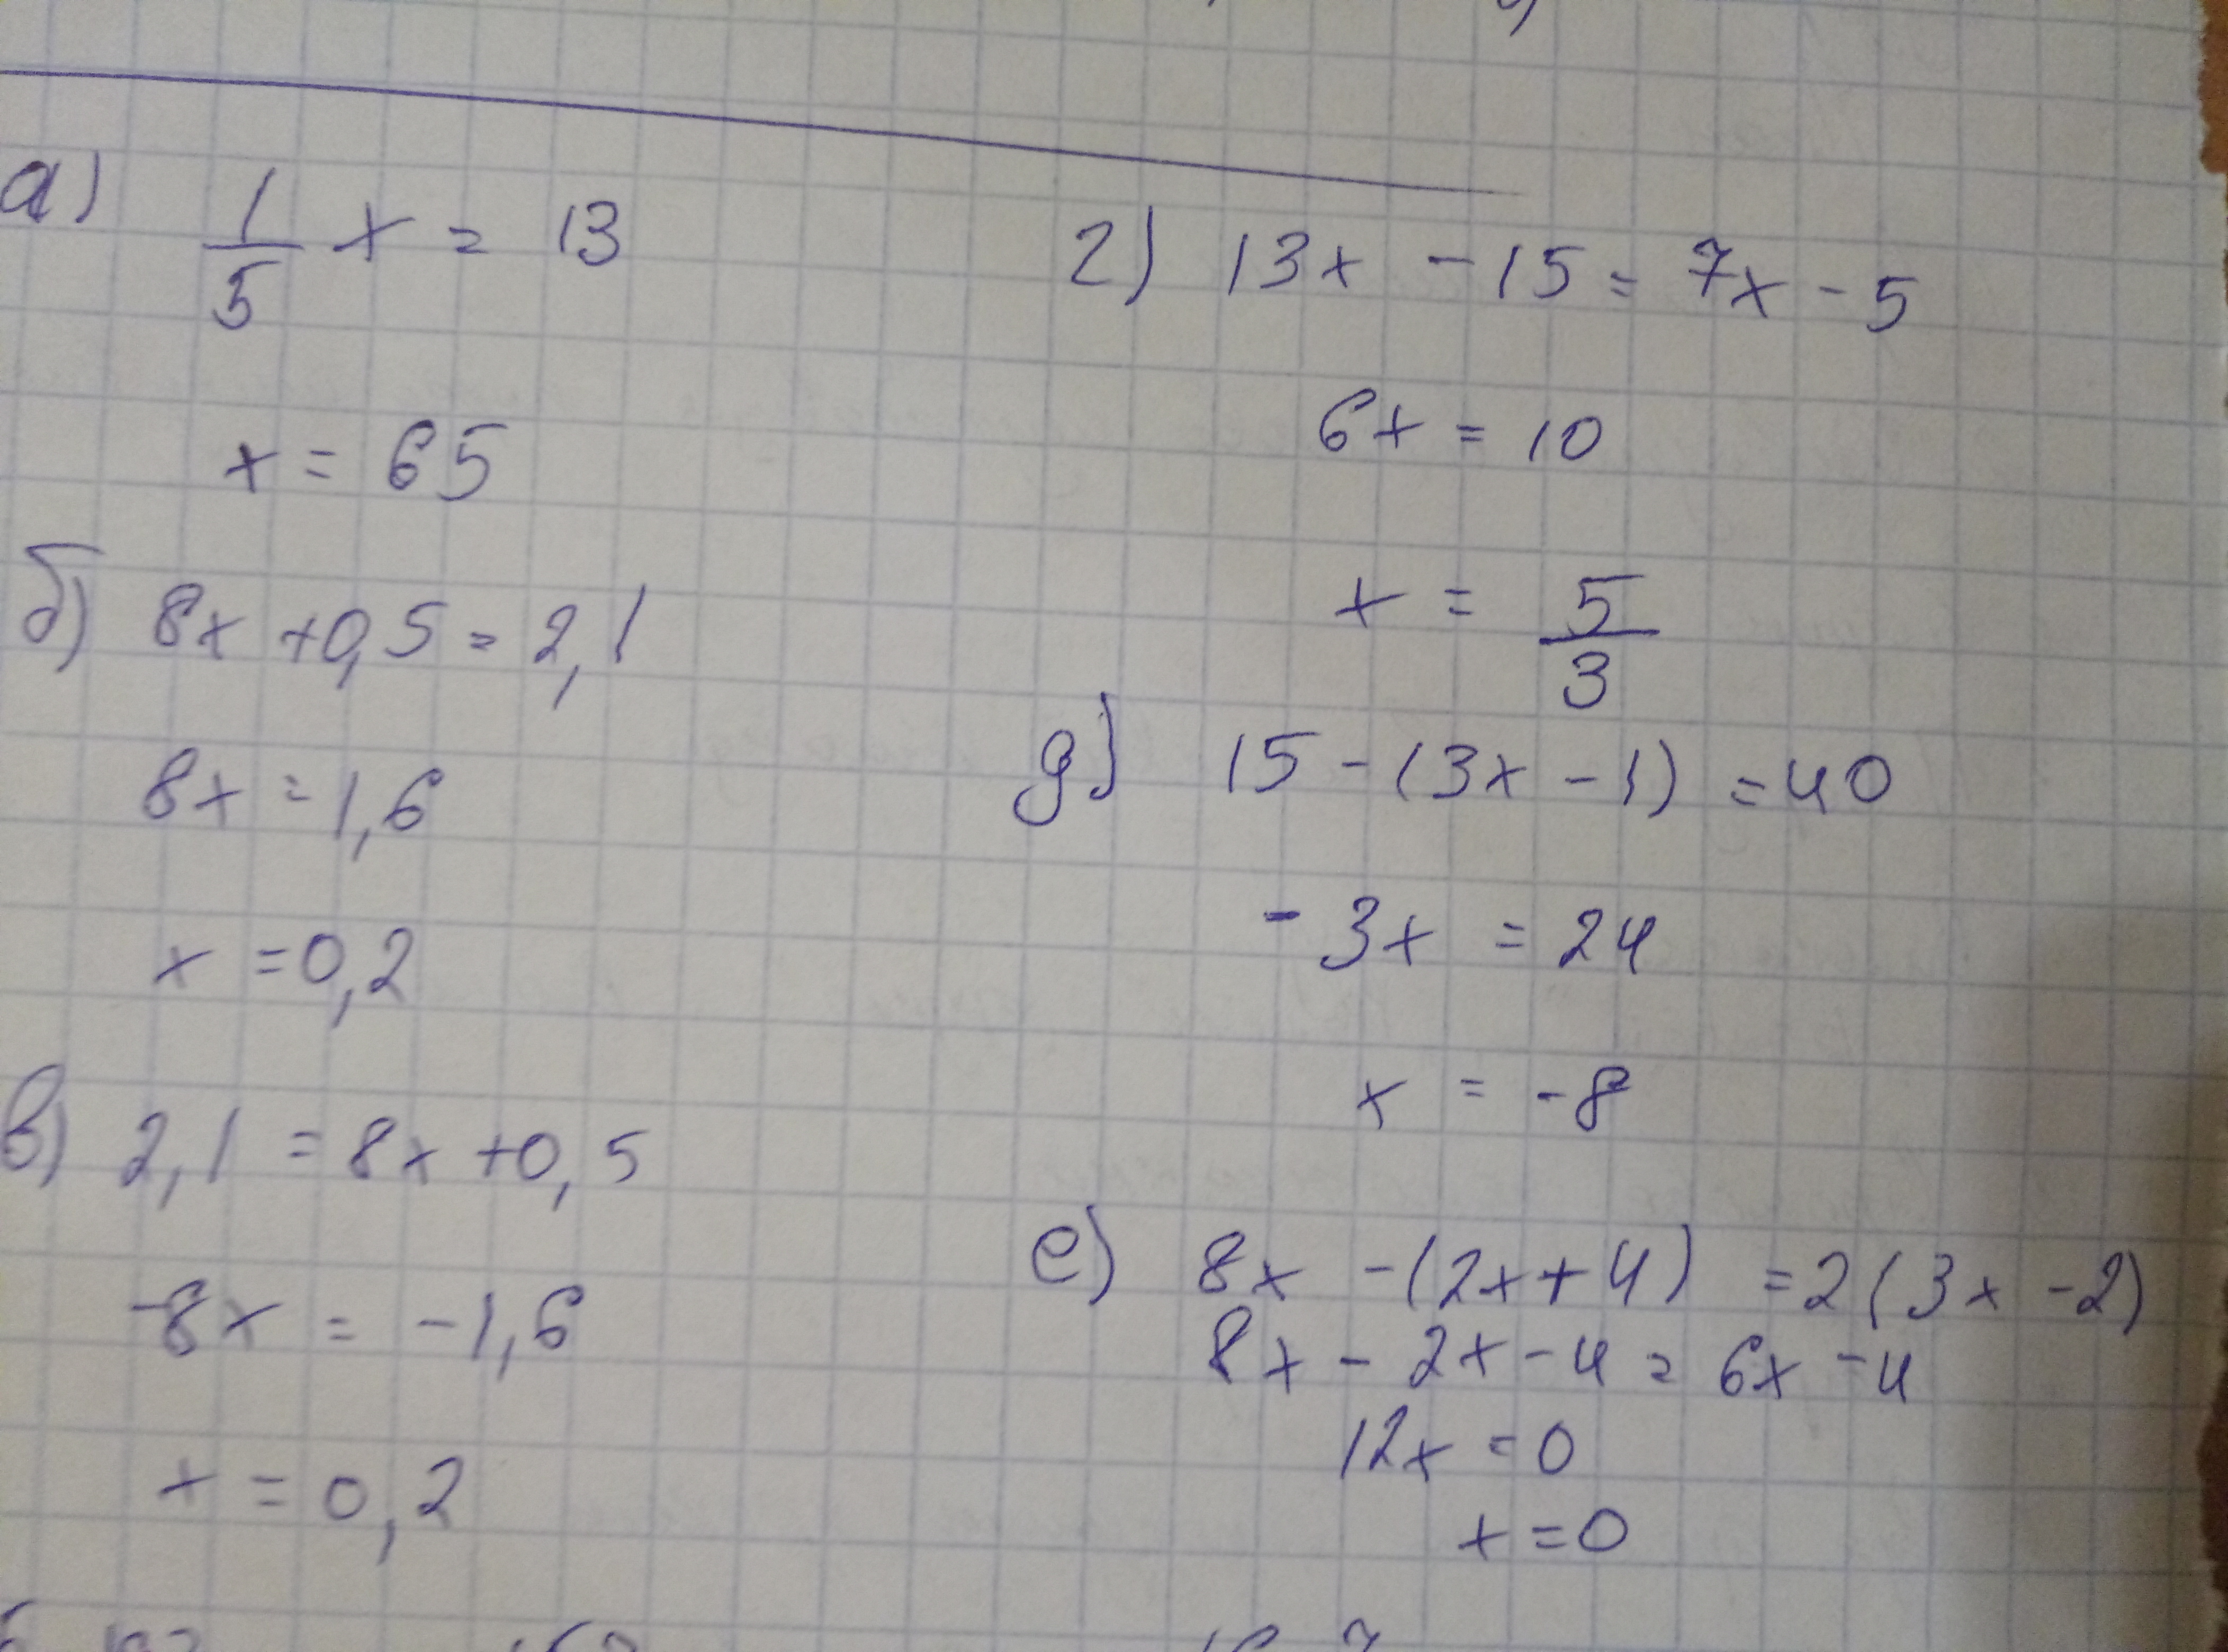 а) 1/5 x = 13
x = 65
б) 8x + 0,5 = 2,1
8x = 1,6
x = 0,2
в) 2,1 = 8x + 0,5
-8x = -1,6
x = 0,2
г) 13x - 15 = 7x - 5
6x = 10
x = 5/3
д) 15 - (3x - 1) = 40
- 3x = 24
x = -8
е) 8x - (2x + 4) = 2(3x - 2)
8x - 2x - 4 = 6x - 4
12x = 0
x = 0